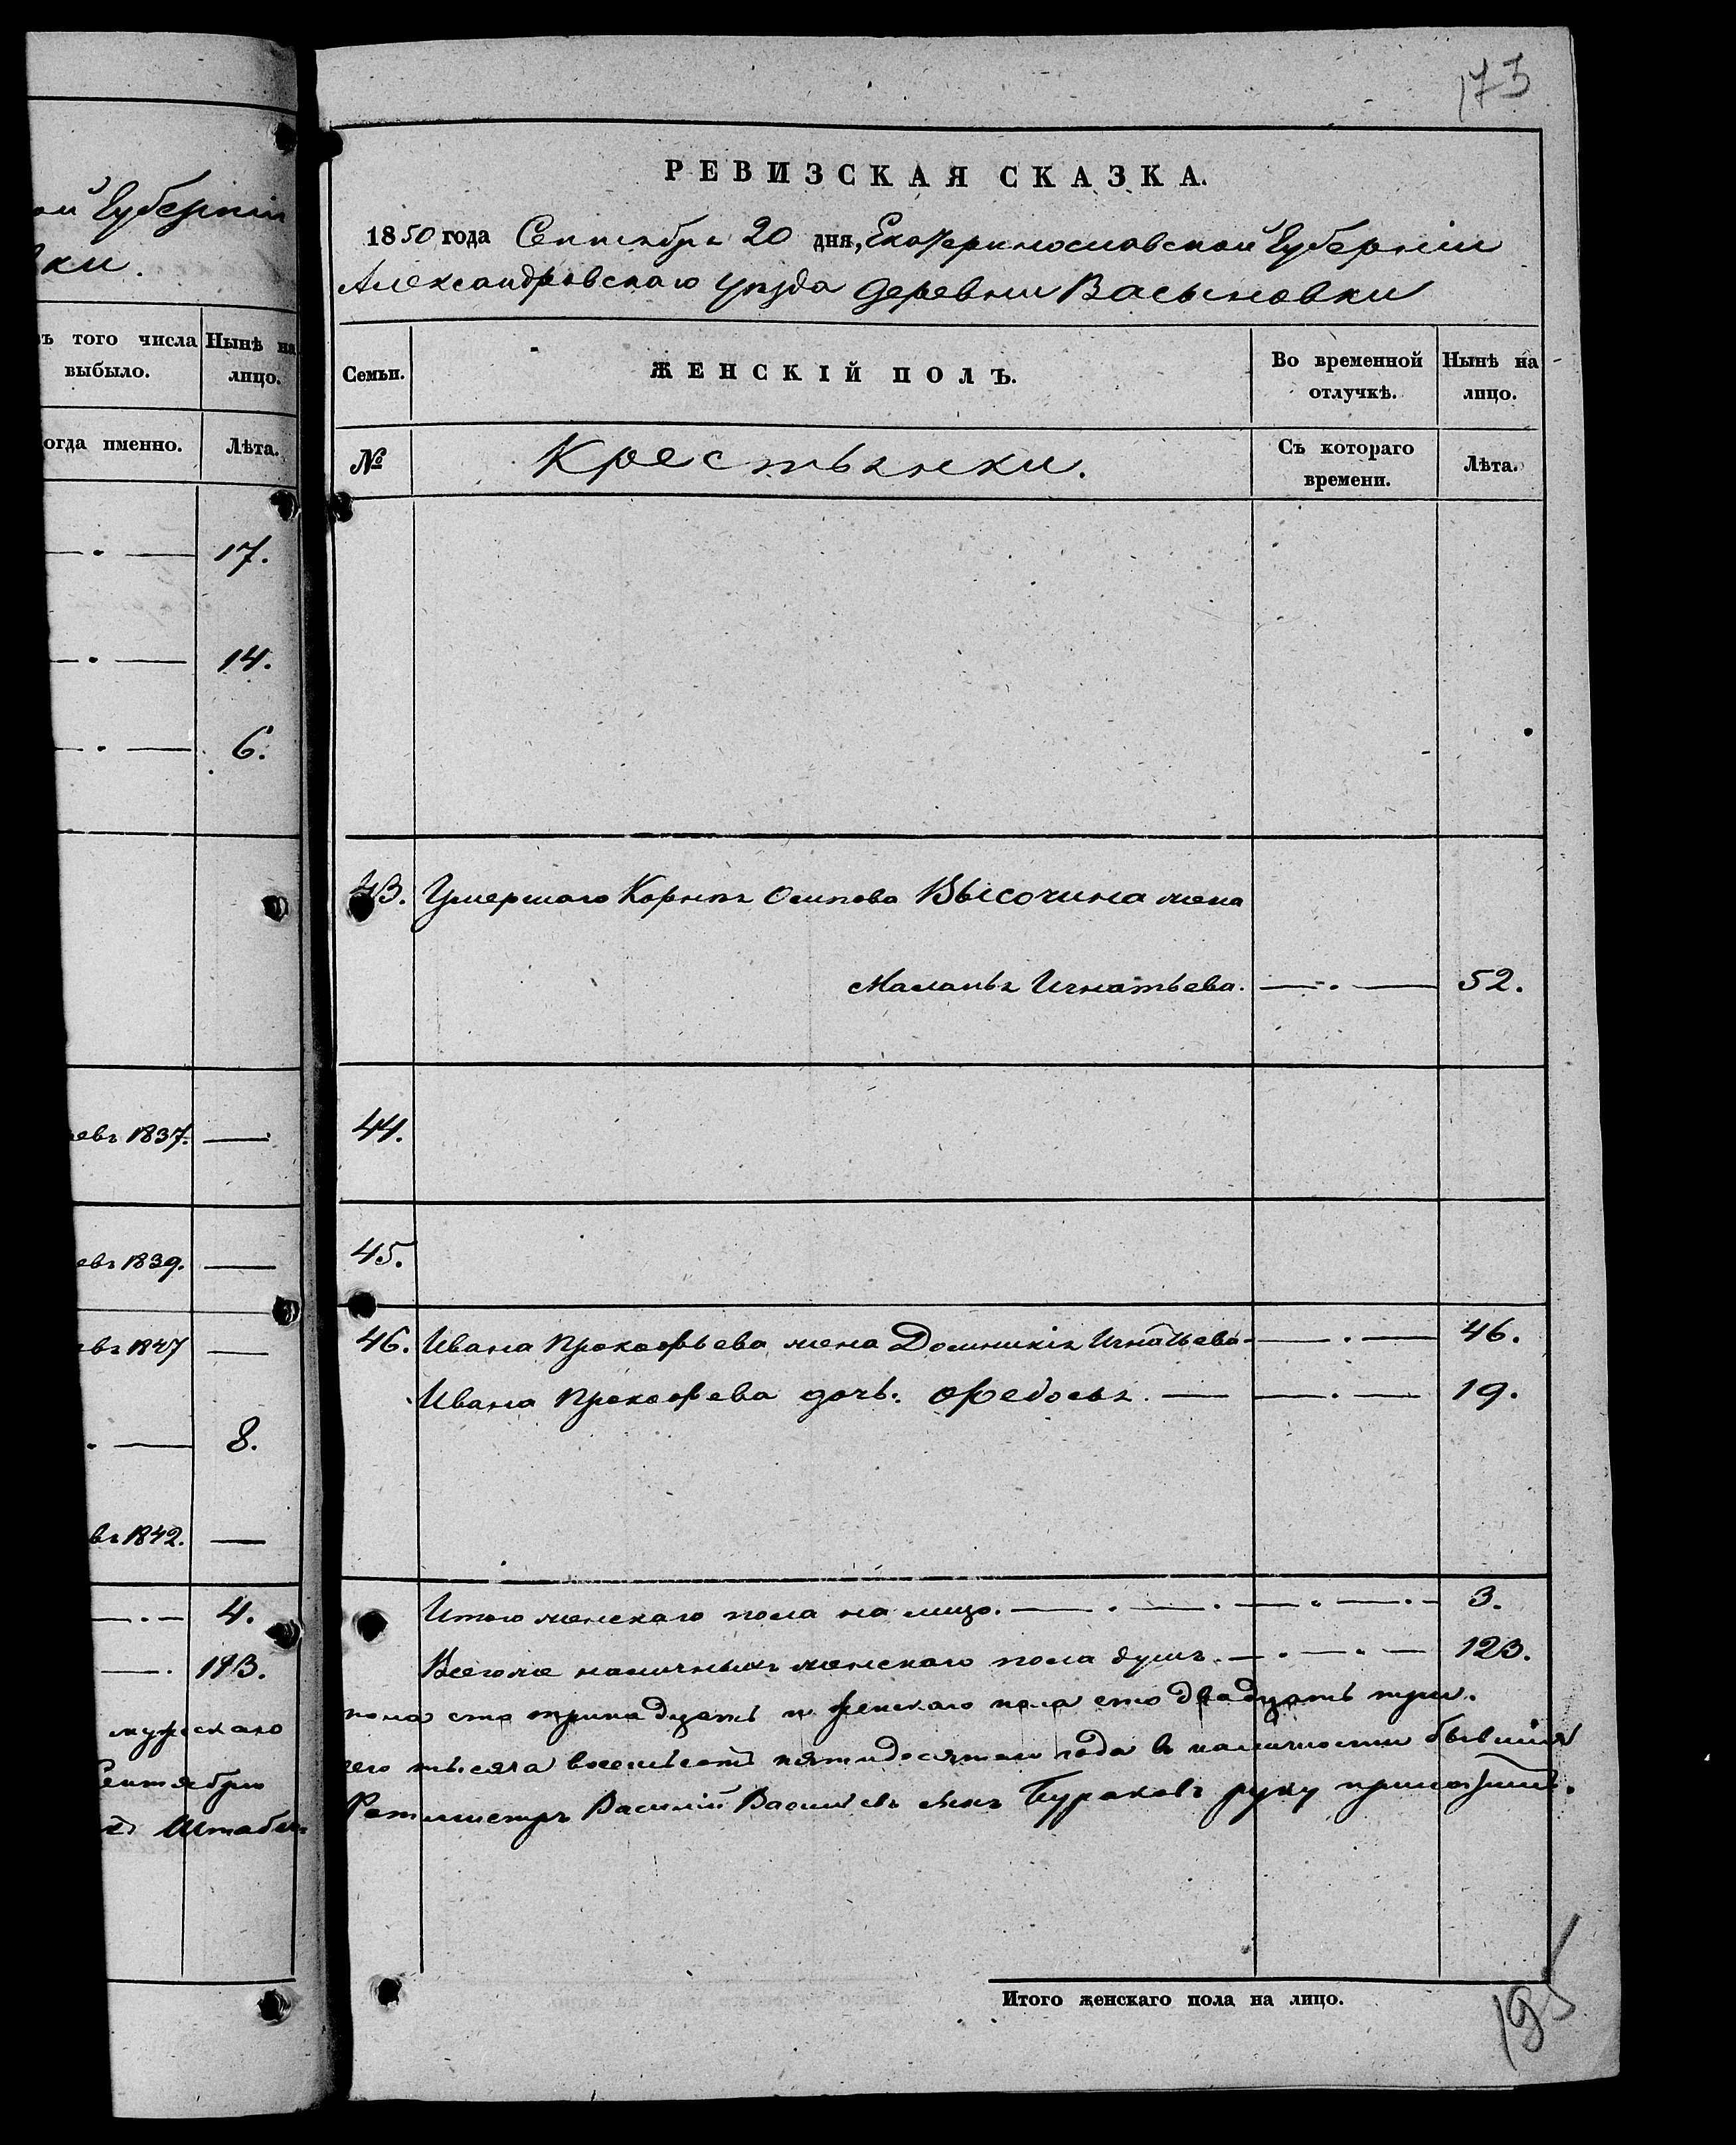 ой Губерніи
ки.
ъ того числа выбыло.
Нынѣ на лицо.
огда именно.
Лѣта.
— . — 17.
— . — 14.
— . — 6.
1837. —
1839. —
1847 —
. — 8.
1842. —
— . — 4.
— . 113.
мужскаго
Сентября
Штабсъ
173
РЕВИЗСКАЯ СКАЗКА.
1850 года Сентября 20 дня, Екатеринославской Губерніи
Александровскаго уѣзда деревни Васиновки
Семьи.
ЖЕНСКІЙ ПОЛЪ.
Во временной отлучкѣ.
Нынѣ на лицо.
№
Крестьянки.
Съ котораго времени.
Лѣта.
43. Умершаго Корнѣя Осипова Высочина жена
Маланья Игнатьева. — . — 52.
44.
45.
46. Ивана Прокофьева жена Домникія Игнатьева — . — 46.
Ивана Прокофева дочь: Ѳедосья — — . — 19.
Итого женскаго пола на лицо. — . — . — . — . — 3.
Всегоже наличныхъ женскаго пола душъ — . — . — 123.
пола сто тринадцать и женскаго пола сто двадцать три.
его тысяча восемьсотъ пятидесятаго года въ наличности бывшія
Ротмистръ Василій Васильевъ сынъ Бураковъ руку приложилъ.
Итого женскаго пола на лицо.
195